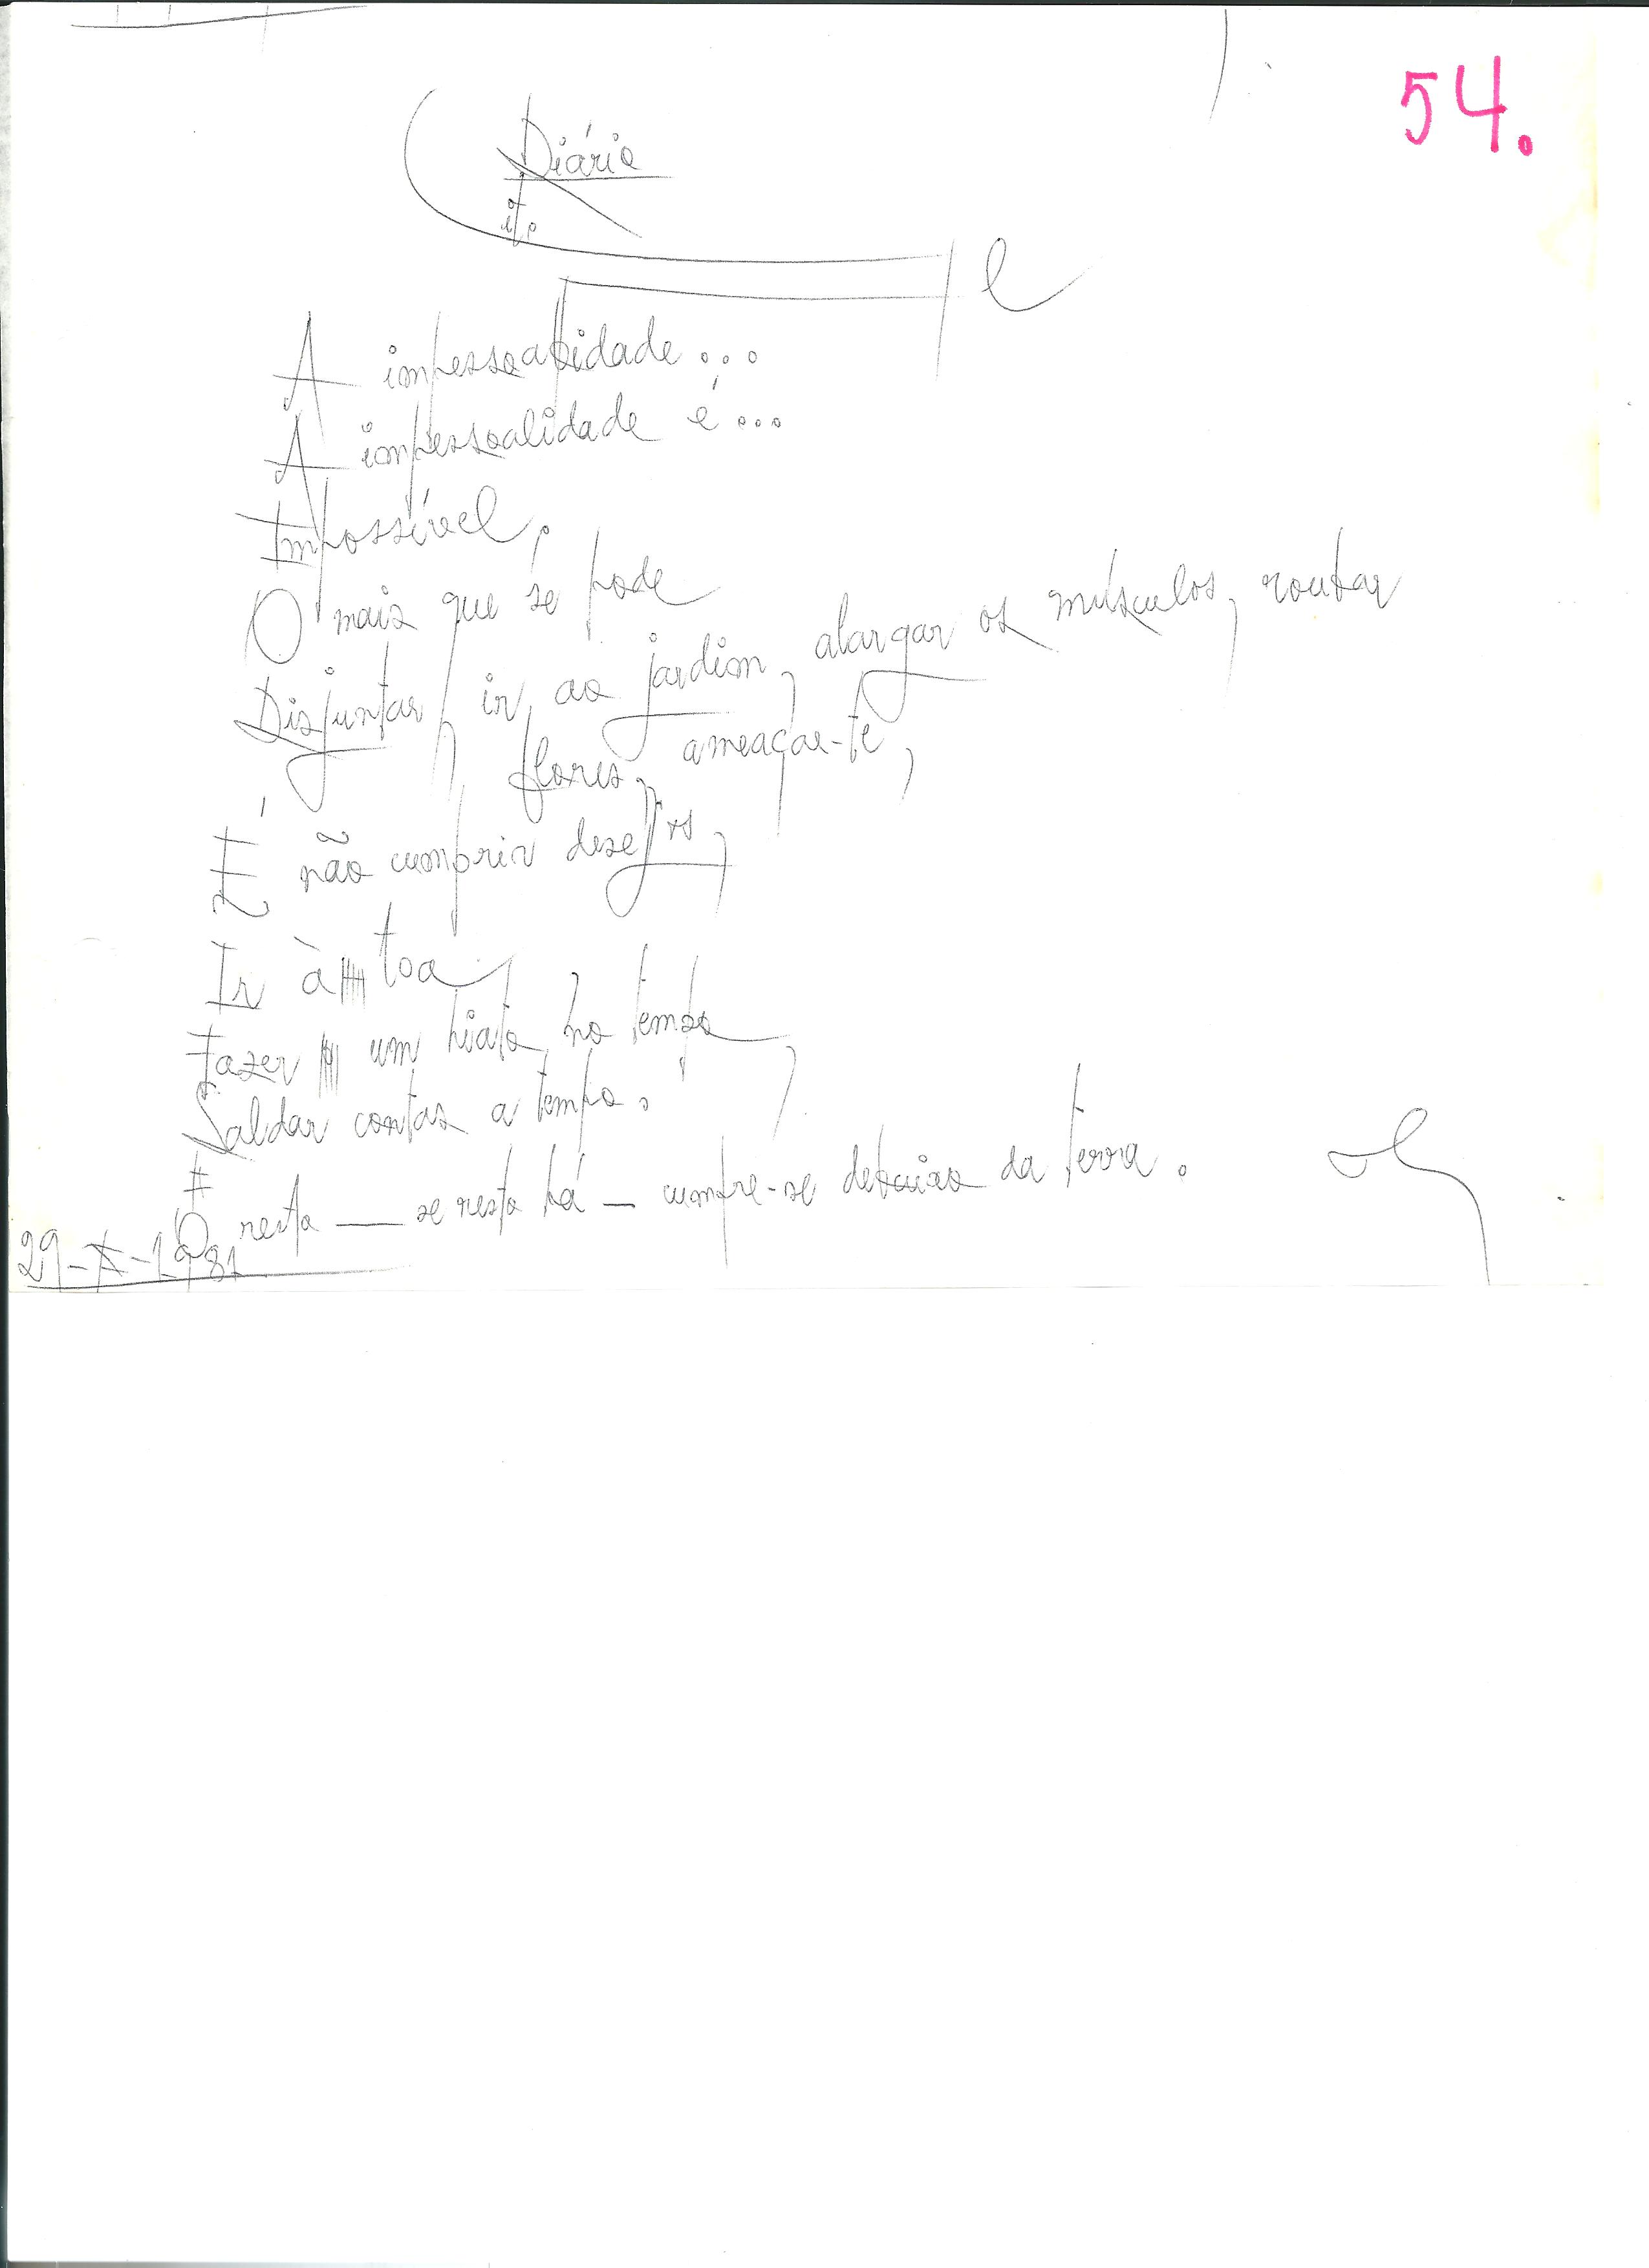 54.
Diário
A impessoalidade...
A impessoalidade é...
Impossível.
O mais que se pode
Disjuntar, ir ao jardim, alargar os músculos, roubar
flores, ameaçar-te,
É não cumprir desejos,
Ir à toa,
Fazer um hiato no tempo,
Saldar contas a tempo.
O resto — se resto há — cumpre-se debaixo da terra.
29-X-1981